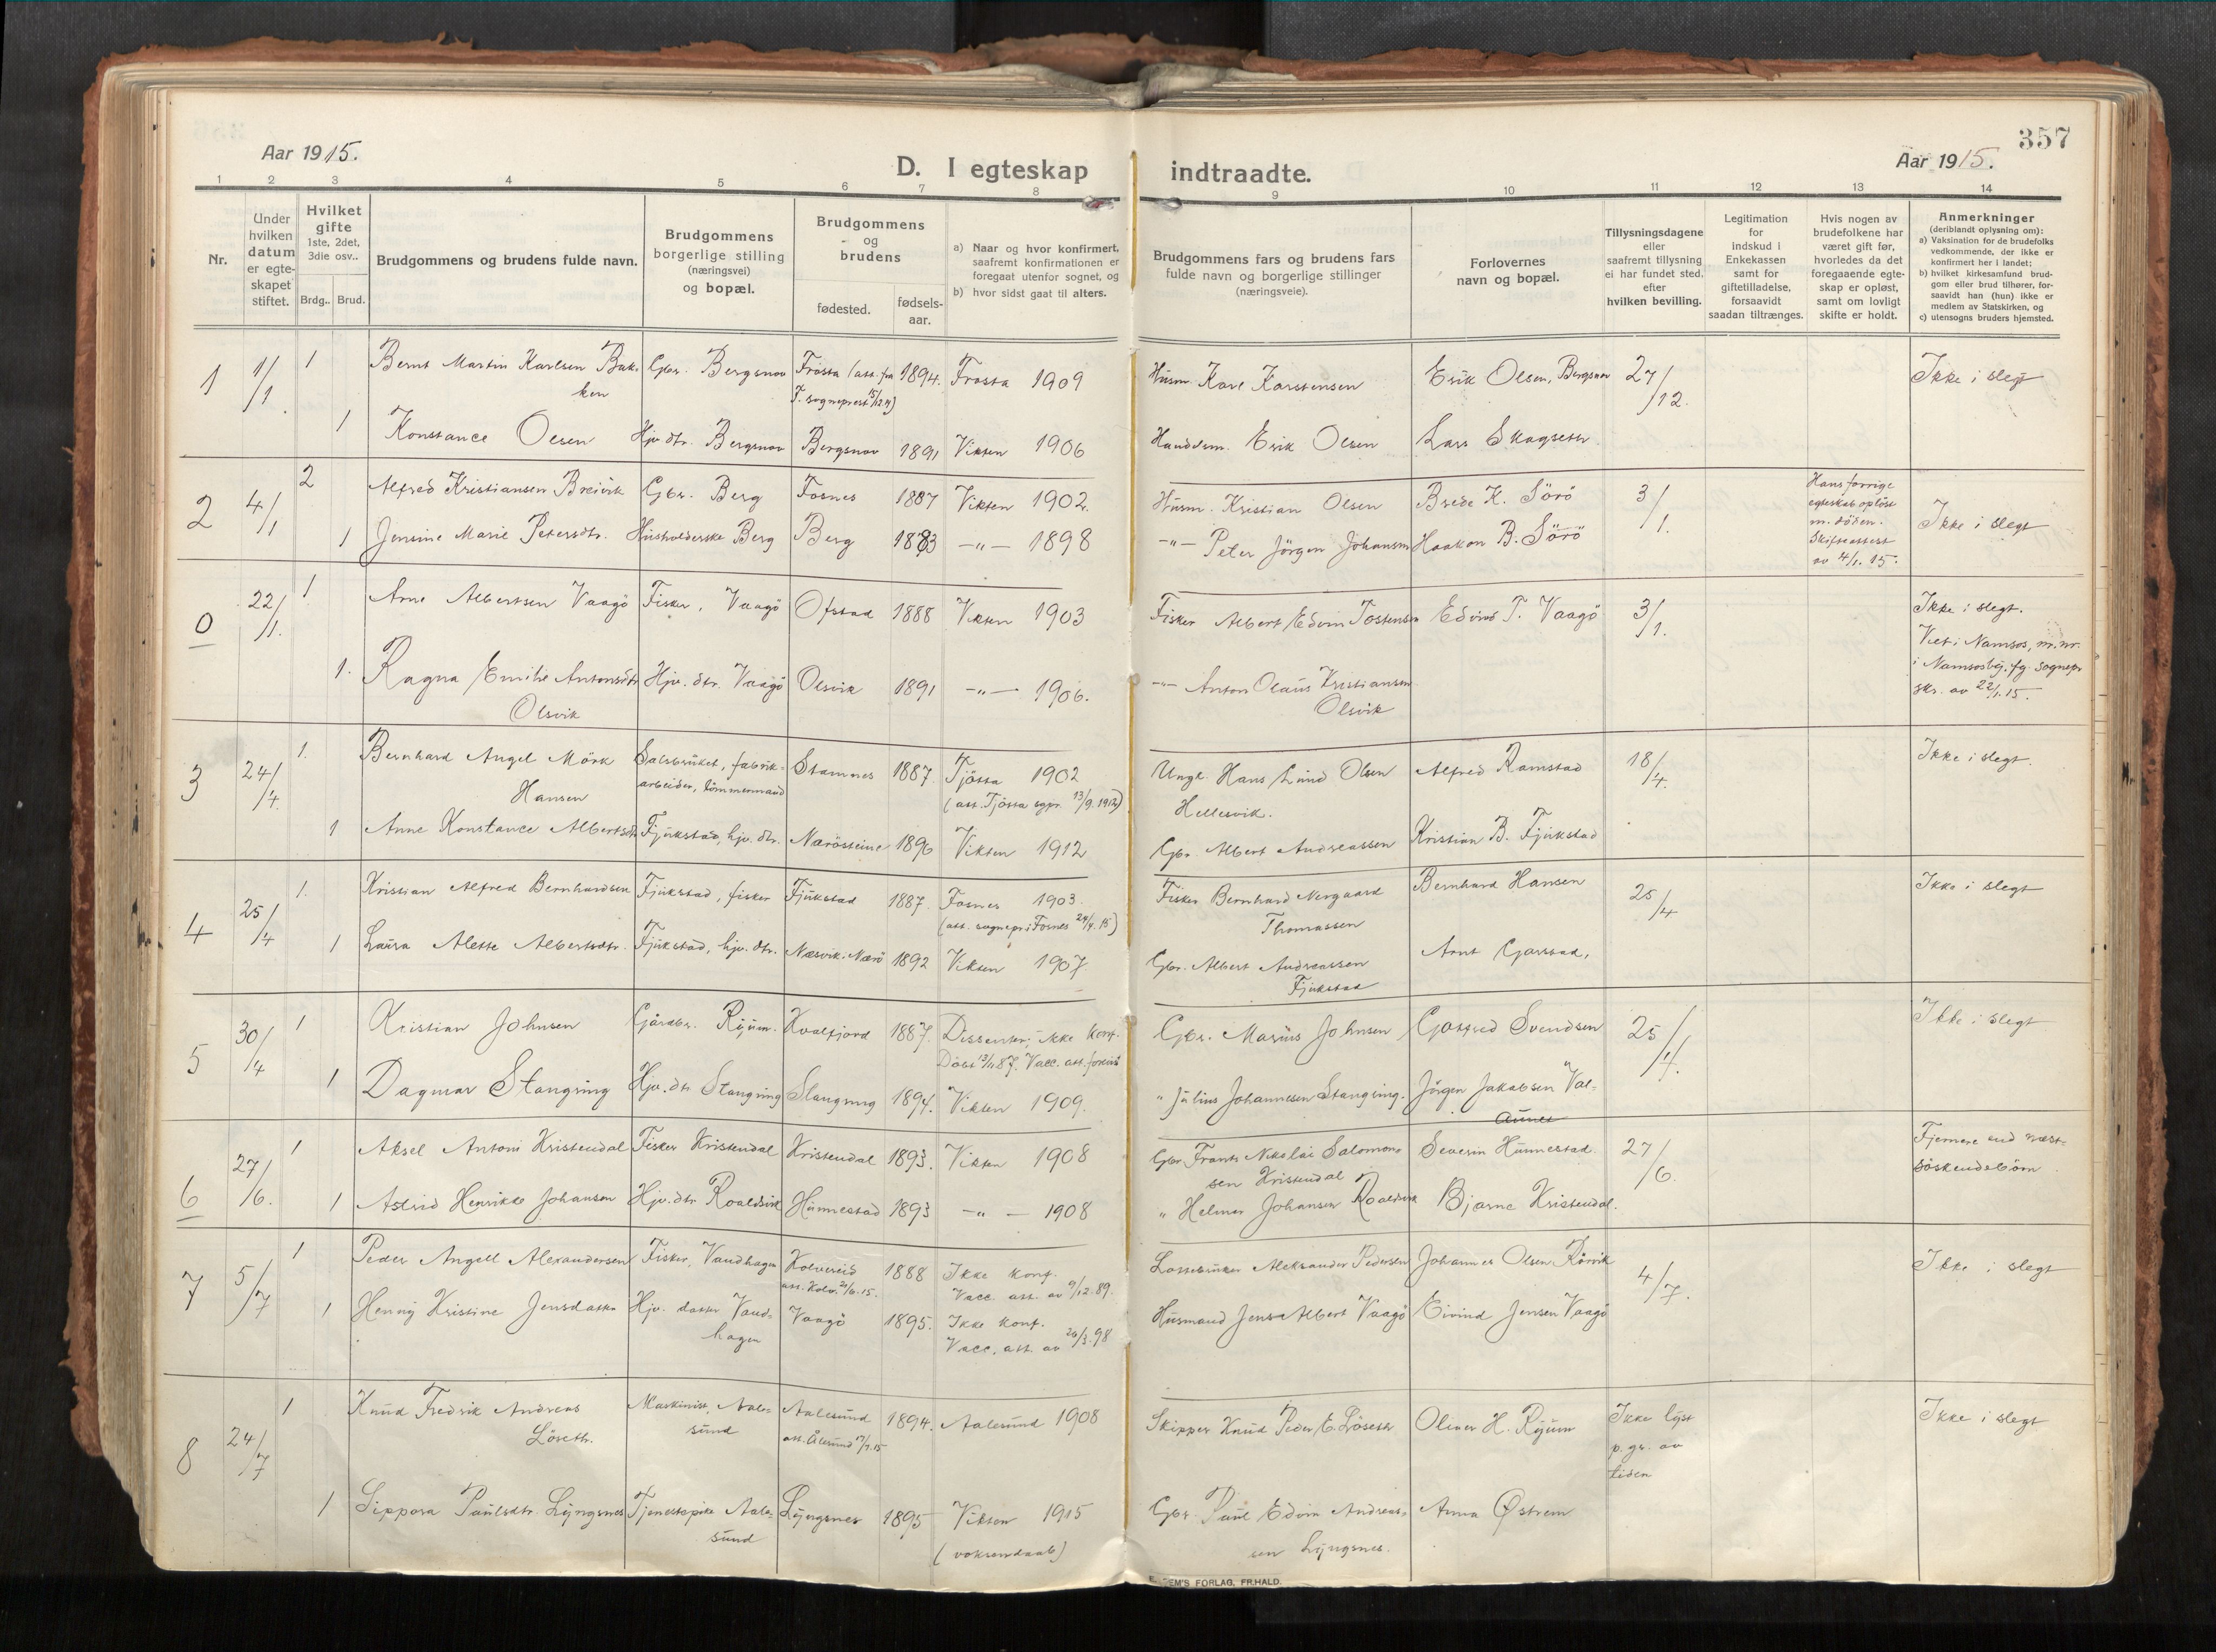 357
Aar 1915.
Aar 1915.
D. I egteskap indtraadte.
1 2 3 4 5 6 7 8 9 10 11 12 13 14
Nr.
Under hvilken datum er egte-skapet stiftet.
Hvilket gifte 1ste, 2det, 3die osv..
Brdg.. Brud.
Brudgommens og brudens fulde navn.
Brudgommens borgerlige stilling (næringsvei) og bopæl.
Brudgommens og brudens
fødested.
fødsels-aar.
a) Naar og hvor konfirmert, saafremt konfirmationen er foregaat utenfor sognet, og
b) hvor sidst gaat til alters.
Brudgommens fars og brudens fars fulde navn og borgerlige stillinger (næringsveie).
Forlovernes navn og bopæl.
Tillysningsdagene eller saafremt tillysning ei har fundet sted, efter hvilken bevilling.
Legitimation for indskud i Enkekassen samt for giftetilladelse, forsaavidt saadan tiltrænges.
Hvis nogen av brudefolkene har været gift før, hvorledes da det foregaaende egte-skap er opløst, samt om lovligt skifte er holdt.
Anmerkninger (deriblandt oplysning om):
a) Vaksination for de brudefolks vedkommende, der ikke er konfirmert her i landet;
b) hvilket kirkesamfund brud-gom eller brud tilhører, for-saavidt han (hun) ikke er medlem av Statskirken, og
c) utensogns bruders hjemsted.
1 1/1. 1 Bernt Martin Karlsen Bak- Gbr. Bergsnov Frosta (att. fra 1894. Frosta 1909 Husm. Karl Karstensen Erik Olsen, Bergsnov 27/12. Ikke i slegt
ken F. sogneprest 15/12 14)
1 Konstance Olsen Hjv. dtr. Bergsnov Bergsnov 1891 Vikten 1906 Handelsm. Erik Olsen Lars Skagseth
2 4/1 2 Alfred Kristiansen Breivik Gbr. Berg Fosnes 1887 Vikten 1902. Husm. Kristian Olsen Brede K. Sörö 3/1. Hans forrige
egteskab opløst
m. döden.
Skifteattest
av 4/1. 15.
Ikke i slegt
1 Jensine Marie Petersdtr. Husholderske Berg Berg 1883 -"- 1898 -"- Peter Jörgen Johansen Haakon B. Sörö
0 22/1. 1 Arne Albertsen Vaagö Fisker, Vaagö Ofstad 1888 Vikten 1903 Fisker Albert Edvin Tostensen Edvind T. Vaagö 3/1. Ikke i slegt.
Viet i Namsos, m. nr.
i Namsosbg. fg. sognepr.
skr. av 22/1. 15.
1. Ragna Emilie Antonsdtr Hjv. dtr. Vaagö Olsvik 1891 -"- 1906. -"- Anton Olaus Kristiansen
Olsvik Olsvik
3 24/4. 1. Bernhard Angel Mörk Salsbruket, fabrik- Stamnes 1887. Tjötta 1902 Ungk. Hans Lund Olsen Alfred Ramstad 18/4. Ikke i slegt.
Hansen arbeider, tömmermand (att. Tjötta sgpr. 13/9. 1912) Hellesvik.
1 Anne Konstance Albertsdtr Fjukstad, hjv. dtr. Nærösteine 1896 Vikten 1912 Gbr. Albert Andreassen Kristian B. Fjukstad
4 25/4 1. Kristian Alfred Bernhardsen Fjukstad, fisker Fjukstad 1887. Fosnes 1903. Fisker Bernhard Nergaard Bernhard Hansen 25/4 Ikke i slegt
(att. sognepr. i Fosnes 24/4. 15) Thomassen
1 Laura Alette Albertsdtr. Fjukstad, hjv. dtr. Næsvik, Nærö 1892 Vikten 1907 Gbr. Albert Andreassen Arnt Garstad,
Fjukstad
5 30/4 1 Kristian Johnsen Gårdbr. Ryum. Kvalfjord 1887. Dissenter, ikke konf. Gbr. Marius Johnsen Gotfred Svendsen 25/4. Ikke i slegt
Döbt 13/11 87. Vacc. att. forevist
1 Dagmar Stangring Hjv. dtr Stangring Stangring 1894. Vikten 1909. " Julius Johannesen Stangring. Jörgen Jakobsen Val-
aunet
6 27/6. 1 Aksel Antoni Kristendal Fisker Kristendal Kristendal 1893. Vikten 1908 Gbr. Frants Nikolai Salomon- Severin Hunnestad 27/6. Fjernere end næst-
sen Kristendal söskendebörn
1 Astrid Henrikke Johansen Hjv. dtr Roaldsvik Hunnestad 1893 -"- 1908 " Helmer Johansen Roaldsvik Bjarne Kristendal.
7 5/7 1 Peder Angell Alexandersen Fisker, Vandhagen Kolvereid 1888 Ikke konf. Lottebruker Aleksander Pedersen Johannes Olsen Rörvik 4/7. Ikke i slegt
att. Kolv. 21/6. 15. Vacc. att. av 9/12. 89.
1 Henny Kristine Jensdatter Hjv. datter Vand- Vaagö 1895. Ikke konf. Husmand Jens Albert Vaagö Eivind Jensen Vaagö
hagen Vacc. att. av 26/3. 98
8 24/7 1 Knud Fredrik Andreas Maskinist, Aale- Aalesund 1894. Aalesund 1908 Skipper Knud Peder E. Löseth Oliver H. Ryum Ikke lyst Ikke i slegt
Löseth. sund att. Ålesund 17/7. 15 p. gr. av
tiden
1 Sippora Paulsdtr. Lyngsnes Tjenestepike Aale- Lyngsnes 1895 Vikten 1915 Gbr. Paul Edvin Andreas- Anna Østrem
sund (voksendaab) sen Lyngsnes.
EM'S FORLAG, FR.HALD.